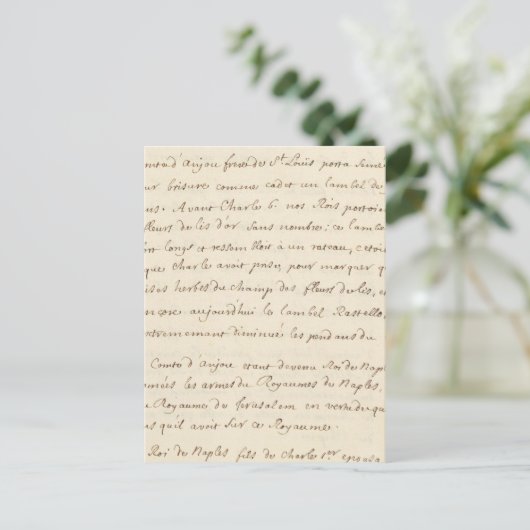 d'Anjou frere de St. Loüis porta semé
brisure comme cadet un lambel de
Avant Charle 6. nos Rois portoie
fleurs de lis d'or sans nombre; ce lambe
longs et ressembloit à un rateau, c'etoi
que Charle avoit pris, pour marquer q
herbes du champ des fleurs de lis, e
aujourdhui le lambel Rastello
extremement diminué les pendans du
Comte d'Anjou etant devenu Roi de Napl
les armes du Royaumes de Naples,
Royaume de Jerusalem en vertu de qu
qu'il avoit sur ce Royaume.
Roi de Naples fils de Charles 1er epousa